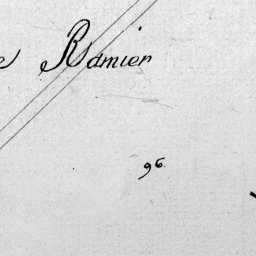 Ramier
96